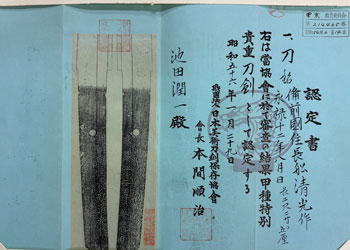 認定書
一、刀 銘 備前國住長船清光作
永禄十二年八月日 長二尺二寸五分
右は當協會に於て審査の結果甲種特別
貴重刀剣として認定する
昭和五十六年一月二十九日
財団法人日本美術刀剣保存協會
會長 本間順治
池田潤一殿